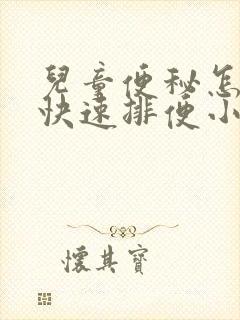 兒童便秘怎
快速排便小
懷其寶